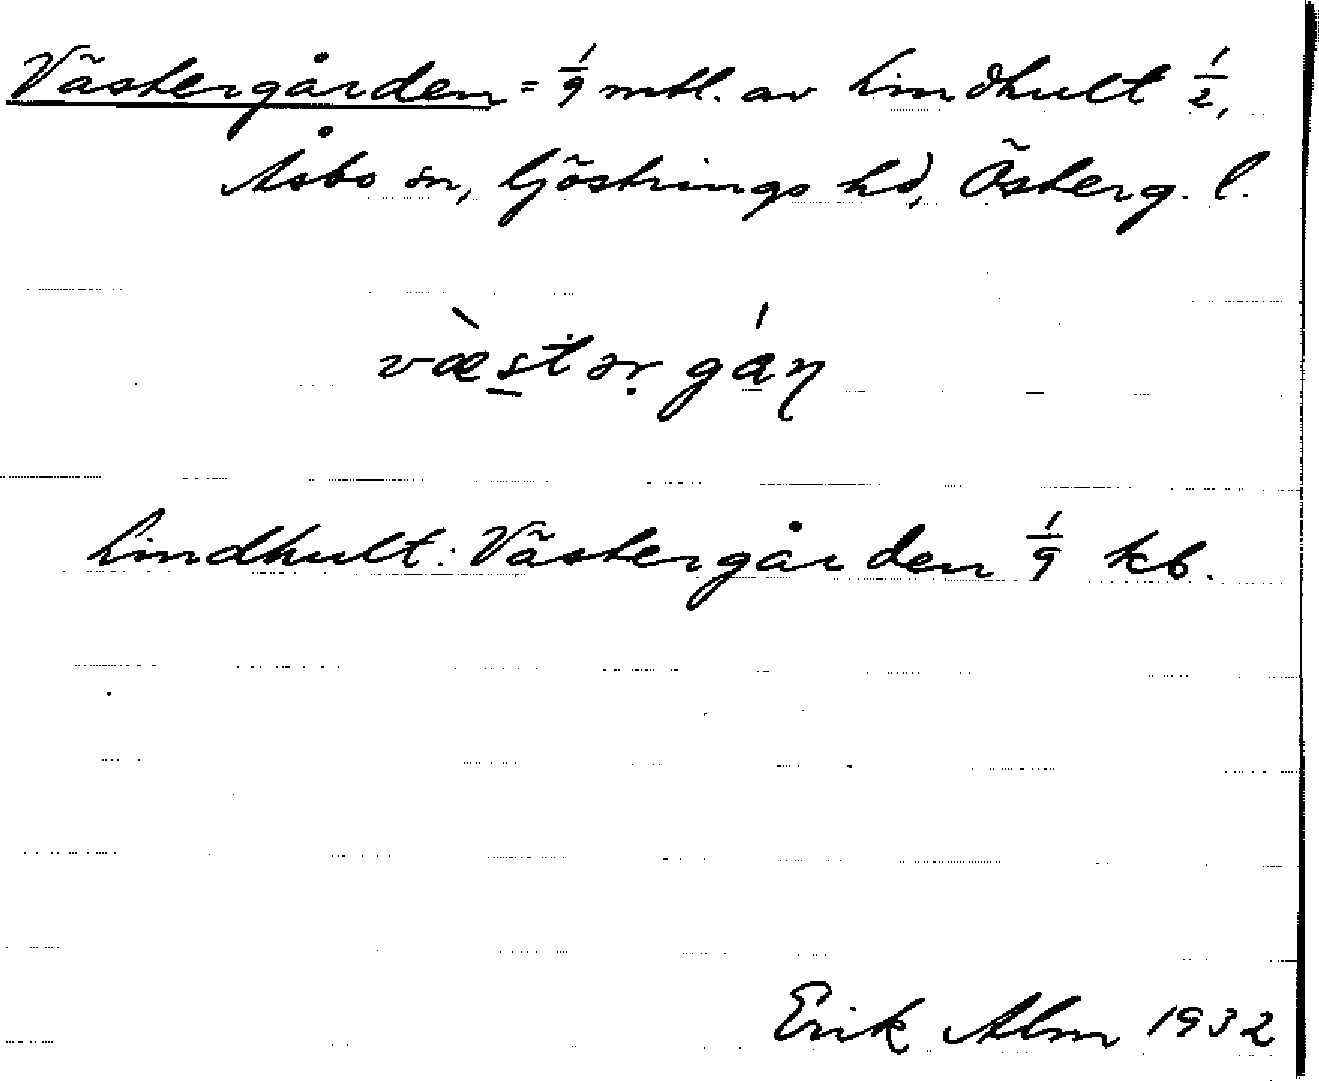 Västergården = 1/9 mtl. av Lindhult 1/2,
Åsbo sn, Göstrings hd, Österg. l.
væ̀stər gán
Lindhult: Västergården 1/9 kb.
Erik Alm 1932